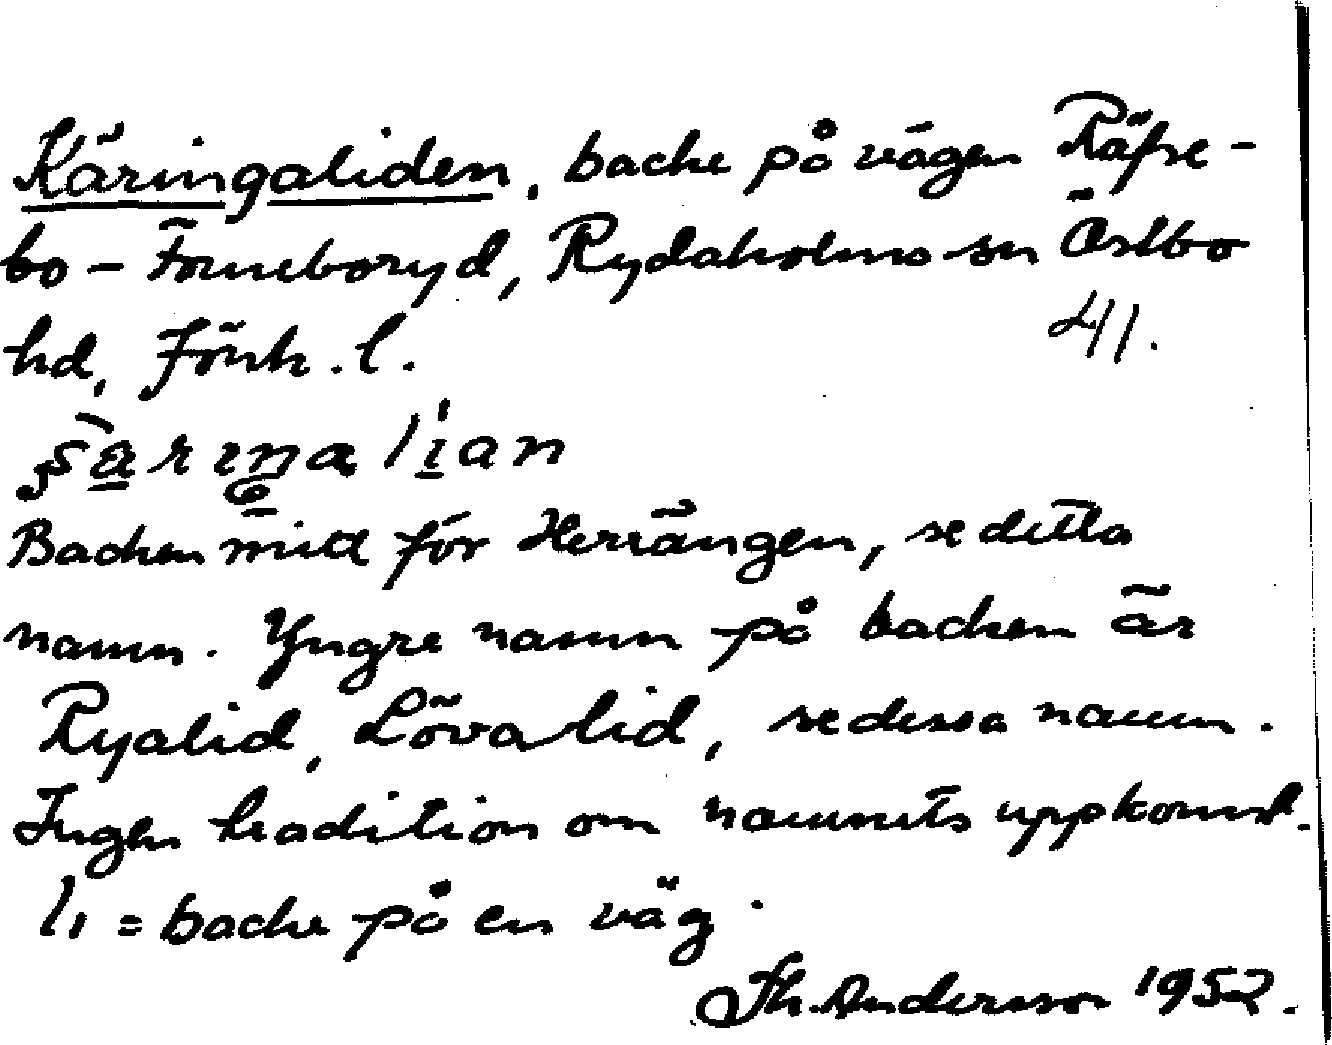 Käringaliden, backe på vägen Räfse-
bo - Forneboryd, Rydaholms sn Östbo
hd, Jönk. l.
41.
Backen mitt för Herrängen, se detta
namn. Yngre namn på backen är
Ryalid, Lövalid, se dessa namn.
Ingen tradition om namnets uppkomst.
li = backe på en väg.
Th. Andersson 1952.